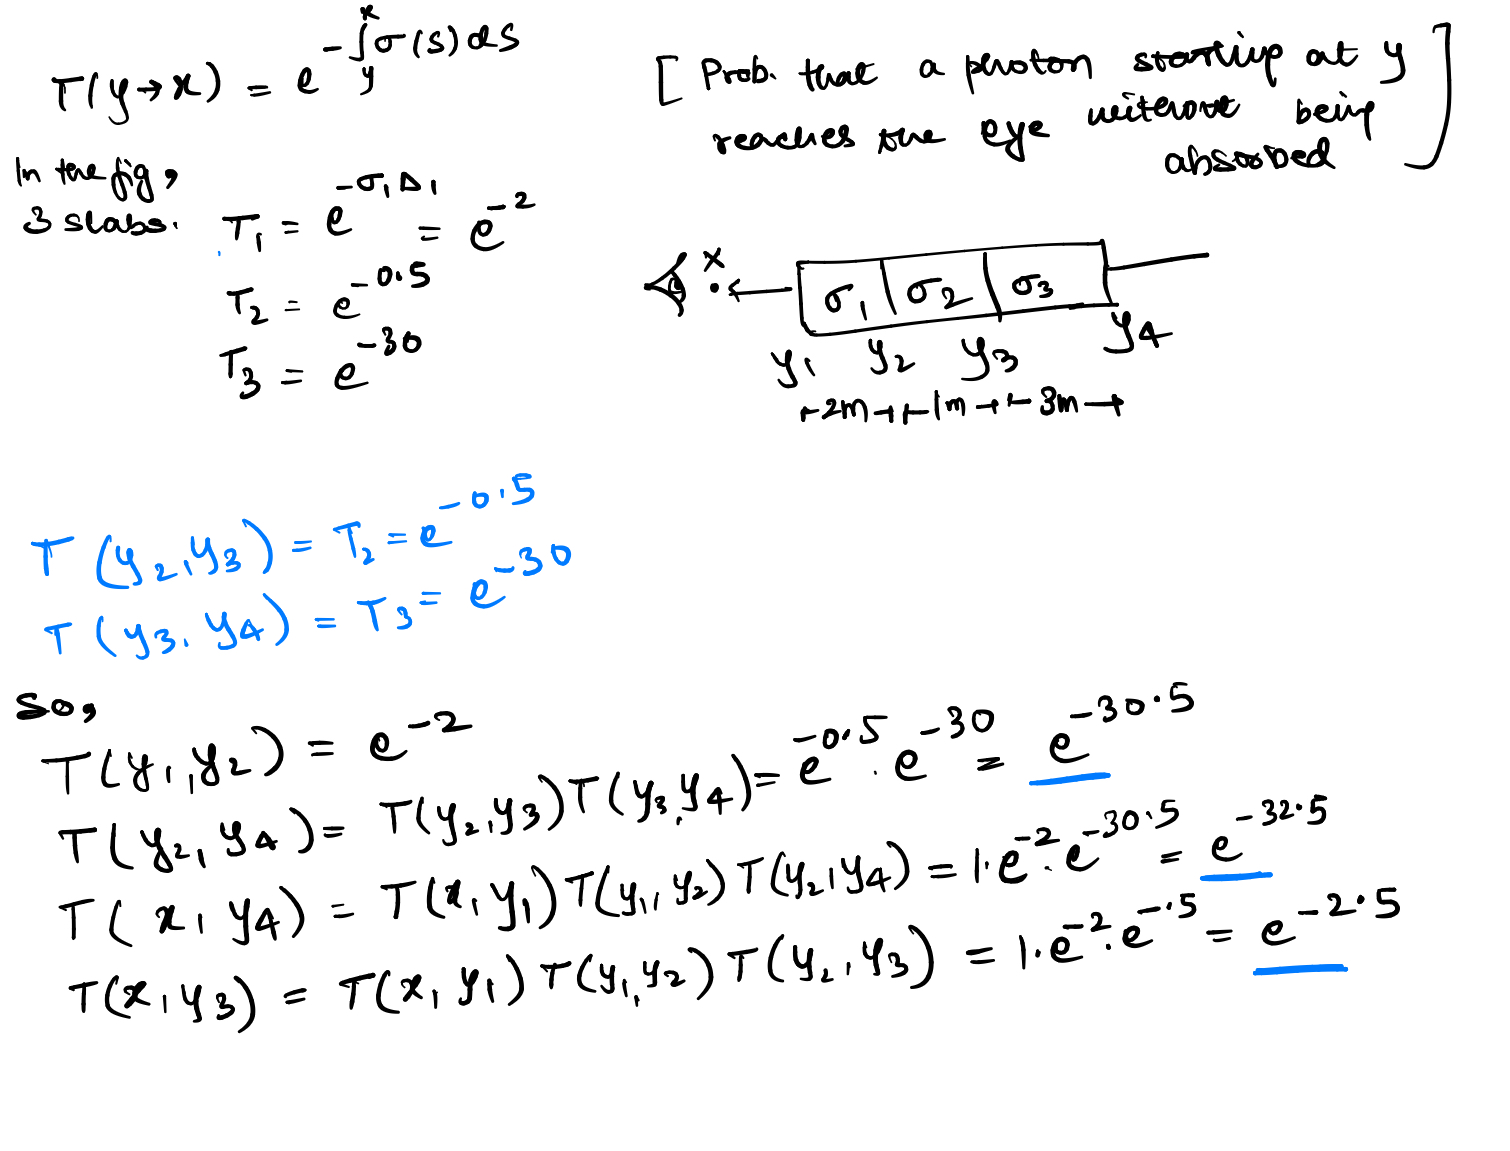 T(y→x) = e^{-∫_y^x σ(s)ds}
[Prob. that a photon starting at y
reaches the eye without being
absorbed]
In the fig,
3 slabs.
T₁ = e^{-σ₁Δ₁} = e^{-2}
T₂ = e^{-0.5}
T₃ = e^{-30}
x
σ₁ σ₂ σ₃
y₁ y₂ y₃ y₄
2m 1m 3m
T(y₂,y₃) = T₂ = e^{-0.5}
T(y₃,y₄) = T₃ = e^{-30}
So,
T(y₁,y₂) = e^{-2}
T(y₂,y₄) = T(y₂,y₃)T(y₃,y₄) = e^{-0.5}.e^{-30} = e^{-30.5}
T(x,y₄) = T(x,y₁)T(y₁,y₂)T(y₂,y₄) = 1.e^{-2}.e^{-30.5} = e^{-32.5}
T(x,y₃) = T(x,y₁)T(y₁,y₂)T(y₂,y₃) = 1.e^{-2}.e^{-.5} = e^{-2.5}